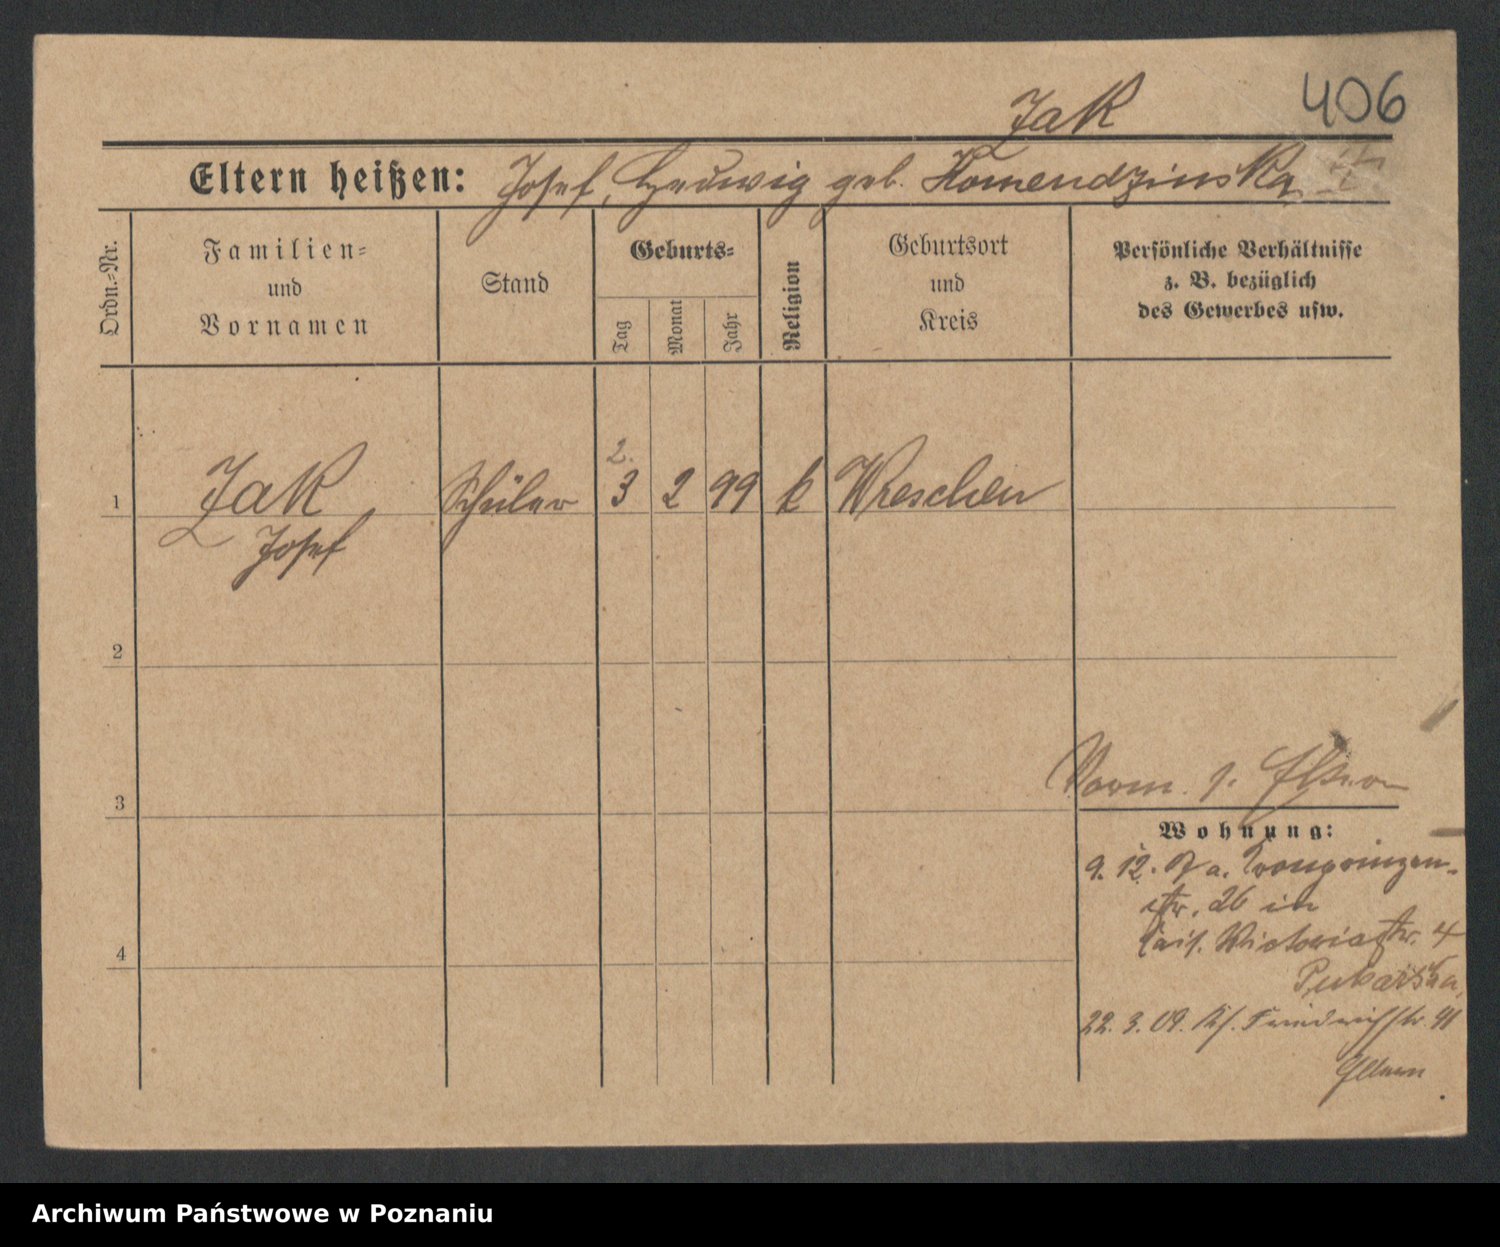 406
Żak
Eltern heißen: Josef, Hedwig geb. Komendzinska
Ordn.=Nr.
Familien=
und
Vornamen
Stand
Geburts=
Tag
Monat
Jahr
Religion
Geburtsort
und
Kreis
Persönliche Verhältnisse
z. B. bezüglich
des Gewerbes usw.
2.
1 Żak Schüler 3 2 99 k Wreschen
Josef
2
3
Vorm. s. Eltern
Wohnung:
9. 12. a. Kronprinzen-
str. 26 in
Victoriastr. 4
22. 3. 09. Friedrichstr. 41
Eltern
4
Archiwum Państwowe w Poznaniu